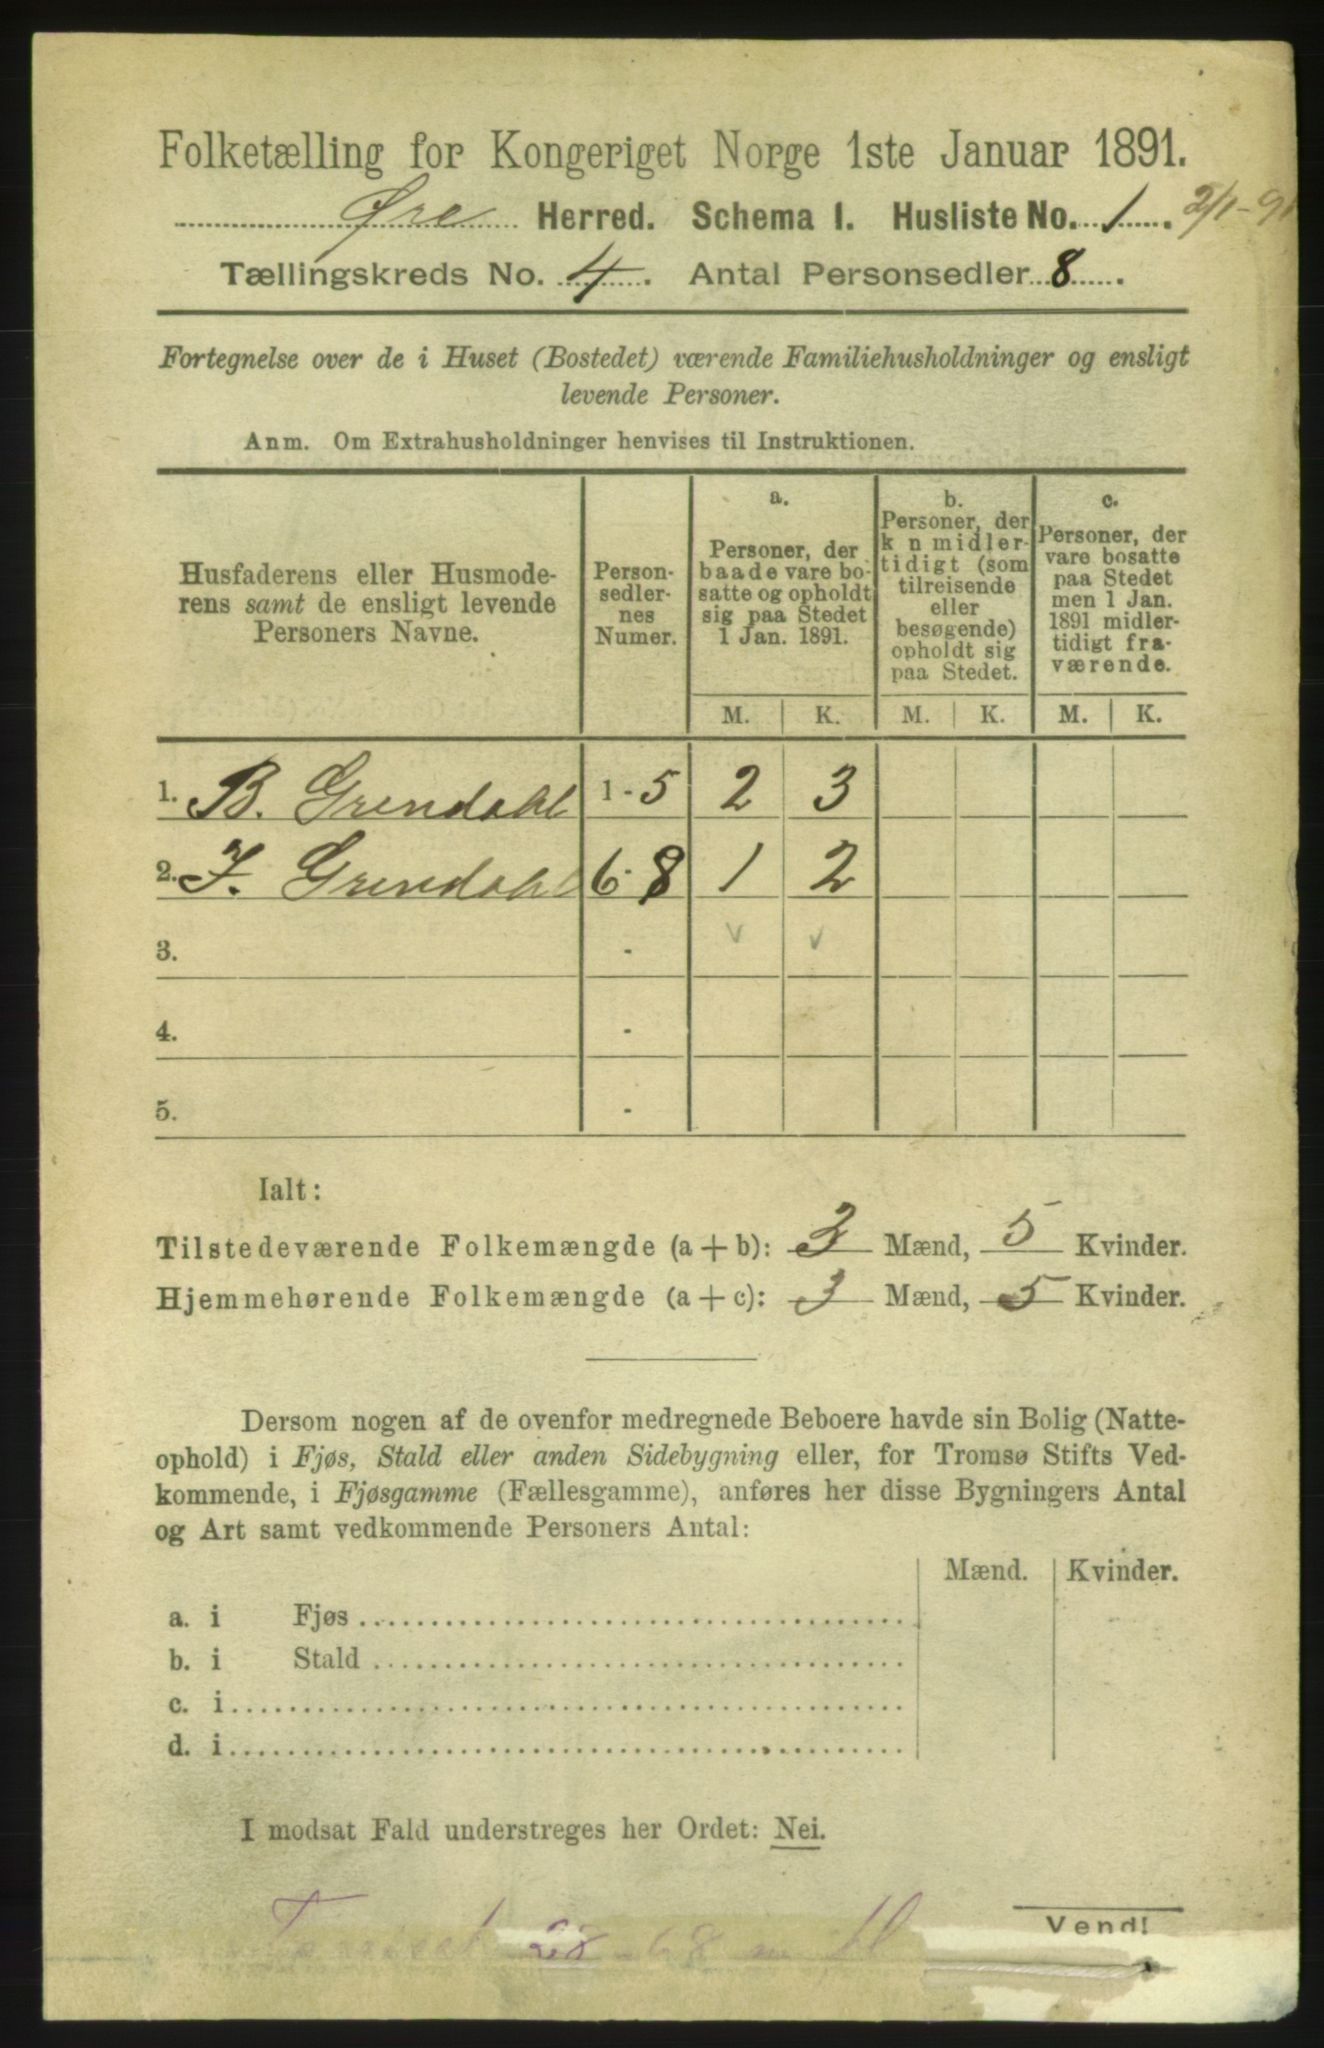 Folketælling for Kongeriget Norge 1ste Januar 1891.
Øre Herred. Schema 1. Husliste No. 1. 2/1-91
Tællingskreds No. 4. Antal Personsedler 8.
Fortegnelse over de i Huset (Bostedet) værende Familiehusholdninger og ensligt
levende Personer.
Anm. Om Extrahusholdninger henvises til Instruktionen.
Husfaderens eller Husmode-
rens samt de ensligt levende
Personers Navne.
Person-
sedler-
nes
Numer.
a.
Personer, der
baade vare bo-
satte og opholdt
sig paa Stedet
1 Jan. 1891.
b.
Personer, der
k n midler-
tidigt (som
tilreisende
eller
besøgende)
opholdt sig
paa Stedet.
c.
Personer, der
vare bosatte
paa Stedet
men 1 Jan.
1891 midler-
tidigt fra-
værende.
M. K. M. K. M. K.
1. B. Grendahl 1-5 2 3
2. F. Grendahl 6-8 1 2
3. -
4. -
5. -
Ialt:
Tilstedeværende Folkemængde (a+b): 3 Mænd, 5 Kvinder.
Hjemmehørende Folkemængde (a+c): 3 Mænd, 5 Kvinder.
Dersom nogen af de ovenfor medregnede Beboere havde sin Bolig (Natte-
ophold) i Fjøs, Stald eller anden Sidebygning eller, for Tromsø Stifts Ved-
kommende, i Fjøsgamme (Fællesgamme), anføres her disse Bygningers Antal
og Art samt vedkommende Personers Antal:
Mænd. Kvinder.
a. i Fjøs
b. i Stald
c. i
d. i
I modsat Fald understreges her Ordet: Nei.
Vend!
28 - 68